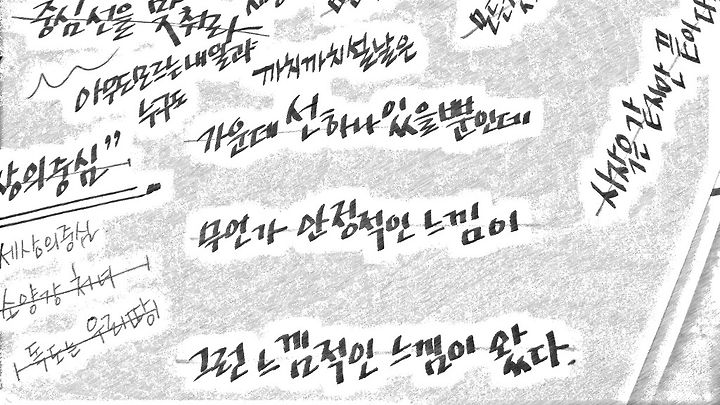 중심선을 맞춰라
아무도모르는 내일과
누구도
까치까치설날은
가운데 선 하나 있을뿐인데
시작은 같지만 끝이다
상의중심"
무언가 안정적인 느낌이
세상의중심
소양강 처녀
독도는 우리땅이
그런 느낌적인 느낌이 왔다.